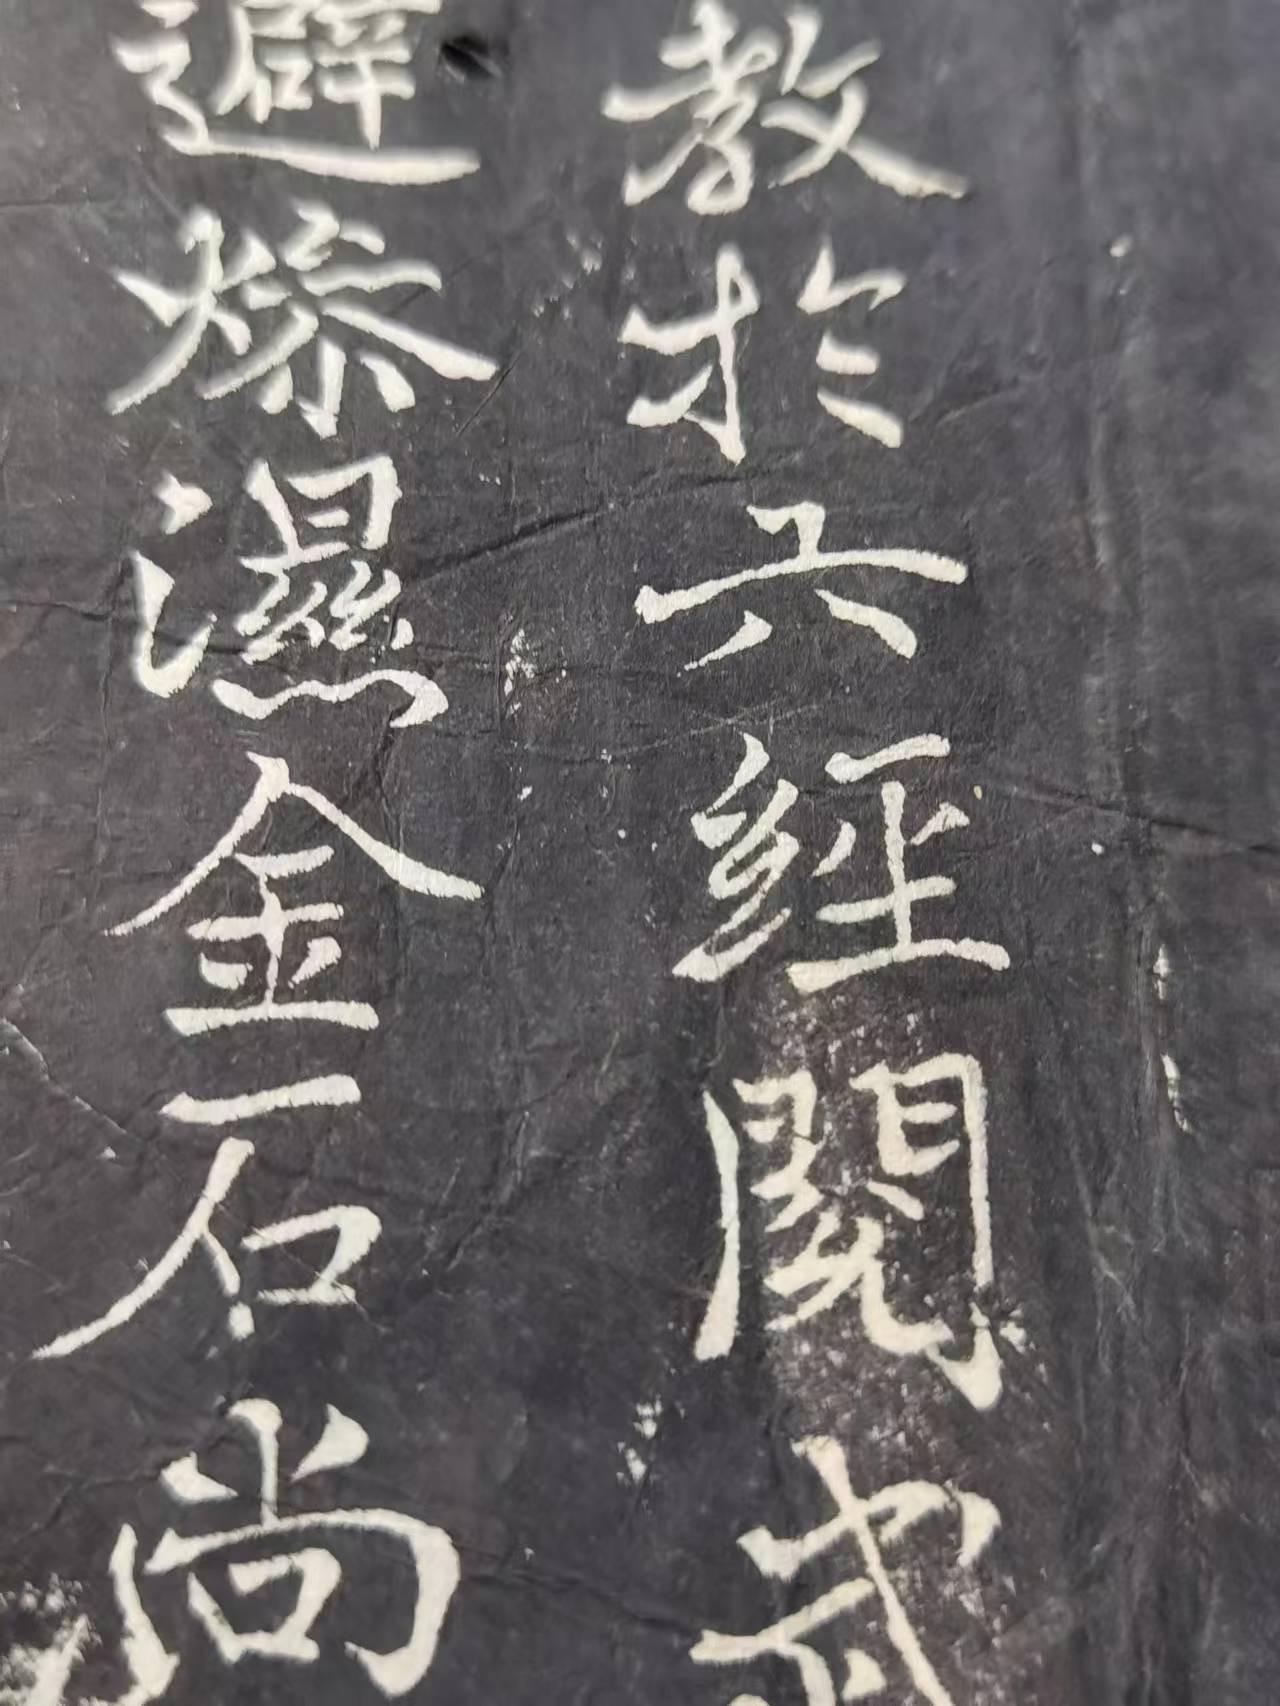 教於六經閱
避燥濕金石尚